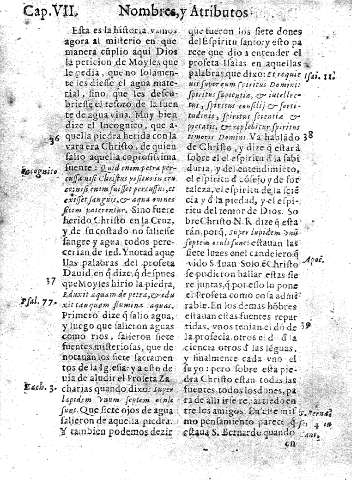 Cap. VII. Nombres, y Atributos
Esta es la historia vamos
agora al misterio en que
manera cũplio aqui Dios
la peticion de Moyses que
le pedia, que no solamen-
te les diesse el agua mate-
rial, sino, que les descu-
briesse el tesoro de la fuen
te de agua viva. Muy bien
dize el Incognito, que a-
quella piedra herida con la
vara era Christo, de quien
salio aquella copiosissima
fuente: Quid enim petra per-
sanguis, & aqua
Sino fuera
herido Christo en la Cruz,
y de su costado no saliesse
sangre y agua, todos pere-
cerian de sed. Y notad aque
llas palabras del profeta
David, en q̃ dize, q̃ despues
que Moyses hirio la piedra,
Eduxit aquam de petra, & edu-
xit tanquam flumina aquas.
Primero dize q̃ salio agua,
y luego que salieron aguas
como rios, salieron siete
fuentes misteriosas, que de
notauan los siete sacramen
tos de la Iglesia: y a esto de
uia de aludir el Profeta Za
charias quando dixo: Super
lapidem vnum septem oculi
sunt. Que siete ojos de agua
salieron de aquella piedra.
Y tambien podemos dezir
36
Incognito
37
Psal. 77.
Zach. 3.
que fueron los siete dones
del Espiritu santo: y esto pa
rece que dio a entender el
profeta Isaias en aquellas
palabras que dixo: Et requie
uit super eum spiritus Domini
spiritus sapientiæ, & intellec-
tus, spiritus consilij & forti-
tudinis, spiritus scientiæ &
pietatis, & replebit eum spiritus
timoris Domini. Va hablãdo
de Christo, y dize q̃ estarà
sobre el el espiritu d̃ la sabi
duria, y de entendimiento,
el espiritu d̃ cõsejo y de for
taleza, el espiritu de la sciẽ
cia y d̃ la piedad, y el espi-
ritu del temor de Dios. So
bre Christo N. R. dize q̃ esta
rán, porq̃, Super lapidem vnũ
septem oculi sunt: estauan las
siete luzes en el candelero q̃
vido S. Iuan. Solo ẽ Christo
se pudieron hallar estas sie
te juntas,
Profeta como cosa admi-
rable. En los demas hõbres
estauan estas fuentes repar
tidas, vnos tenian el dõ de
la profecia otros el d̃ la
ciencia otros d̃ las lẽguas,
y finalmente cada vno el
suyo: pero sobre esta pie-
dra Christo estan todas las
fuentes, todos los dones, pa
ra de alli
tre los amigos. En este mis
mo pensamiento parece q̃
estaua S. Bernardo quando
en
Isai. 11.
38
Apoc.
39
S. Bernar